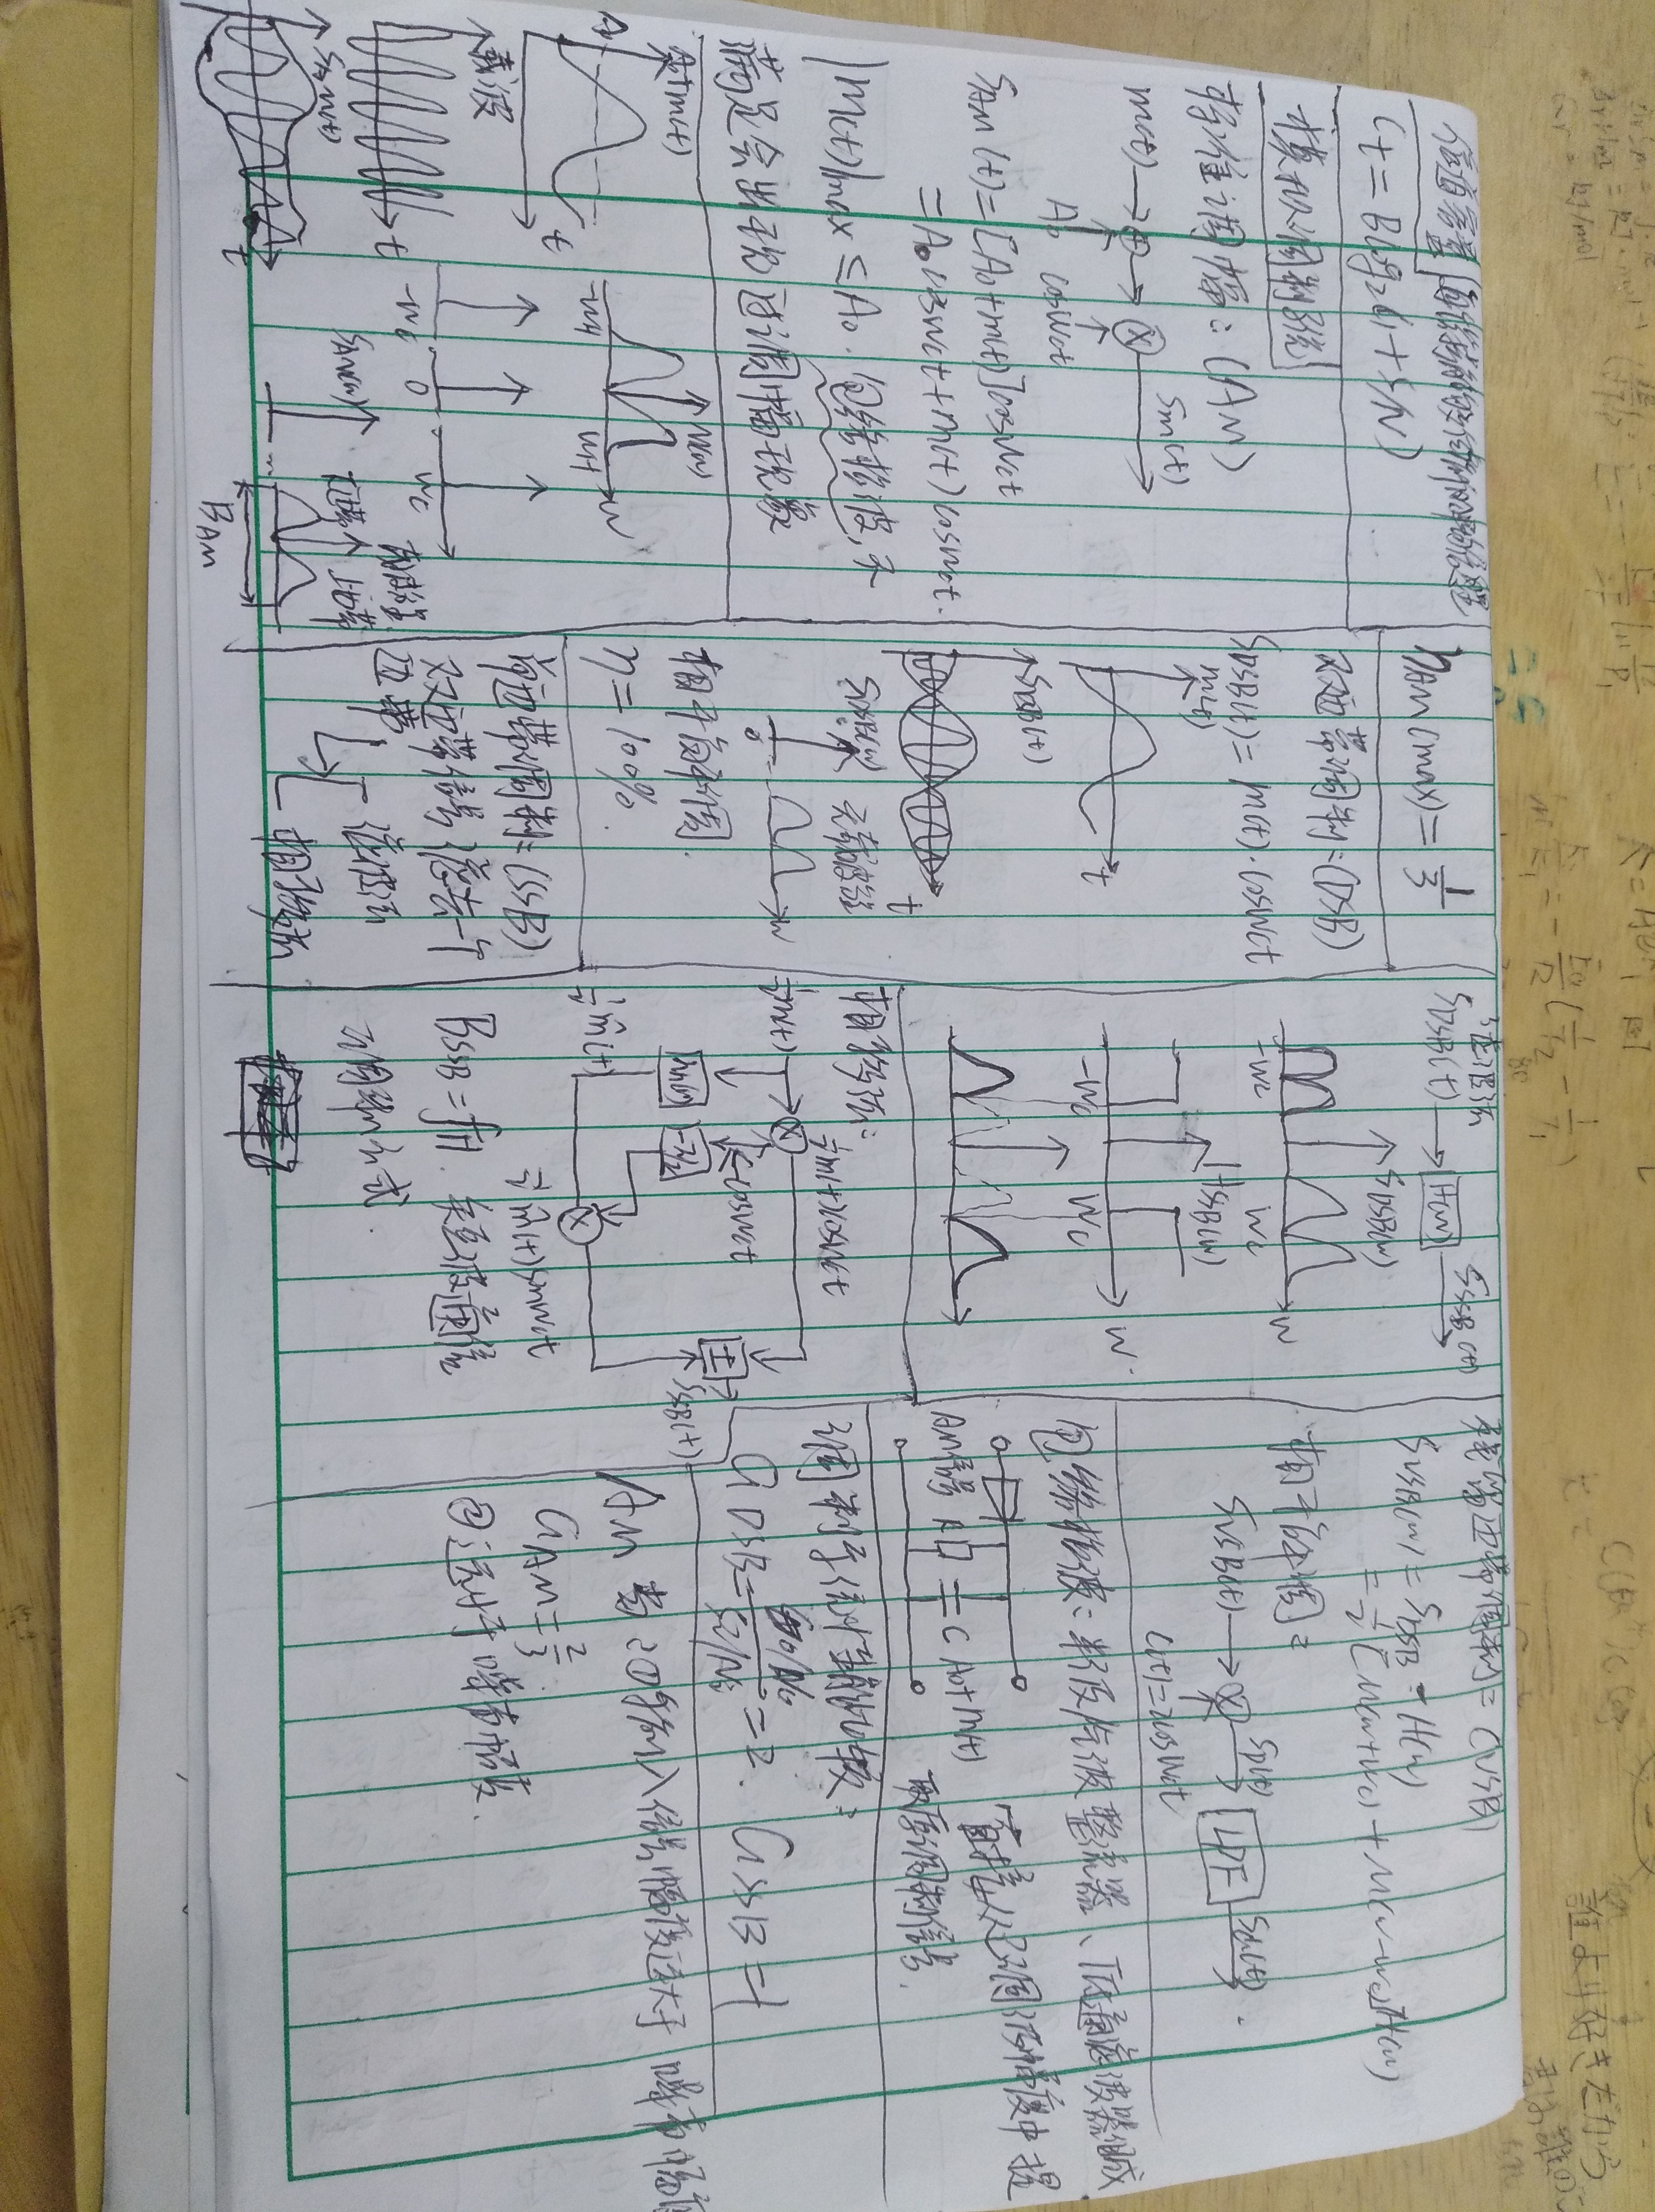 信道容量
Ct = Blog2(1+S/N)
模拟调制系统
标准调幅：(AM)
m(t)
Sm(t)
A0
cosWct
SAM(t) = [A0+m(t)]cosWct
= A0cosWct+m(t)cosWct.
|m(t)|max ≤ A0. 包络检波,不
满足会出现过调幅现象
A0+m(t)
A0
t
M(w)
-WH
WH
W
载波
t
-Wc
0
Wc
SAM(t)
t
SAM(w)
下边带
载波分量
上边带
BAM
ηAM(max) = 1/3
双边带调制：(DSB)
SDSB(t) = m(t)·cosWct
m(t)
t
SDSB(t)
t
SDSB(w)
无载波分量
0
W
相干解调.
η = 100%.
单边带调制：(SSB)
双边带信号滤去一个
边带
滤波法
相移法
滤波法
SDSB(t)
H(w)
SSSB(t)
SDSB(w)
-Wc
Wc
W
HSSB(w)
-Wc
Wc
W
相移法：
½m(t)
½m(t)cosWct
cosWct
Hh(w)
-π/2
±
SSSB(t)
½m̂(t)
½m̂(t)sinWct
BSSB = fH. 短波通信
调制公式.
残留边带调制：(VSB)
SVSB(w) = SDSB·H(w)
= ½[M(w+wc)+M(w-wc)]H(w)
相干解调：
SVSB(t)
Sp(t)
LPF
Sd(t)
C(t)=2cosWct
包络检波：半波/全波整流器、低通滤波器组成
AM信号
R
C
A0+m(t)
直接从已调波幅度中提
取原调制信号.
调制系统性能比较：
GDSB = So/No / Si/Ni = 2. GSSB = 1
AM 当：①输入信号幅度远大于噪声幅度
GAM = 2/3
②远小于噪声幅度.
誰より好きだから
君は誰のこ